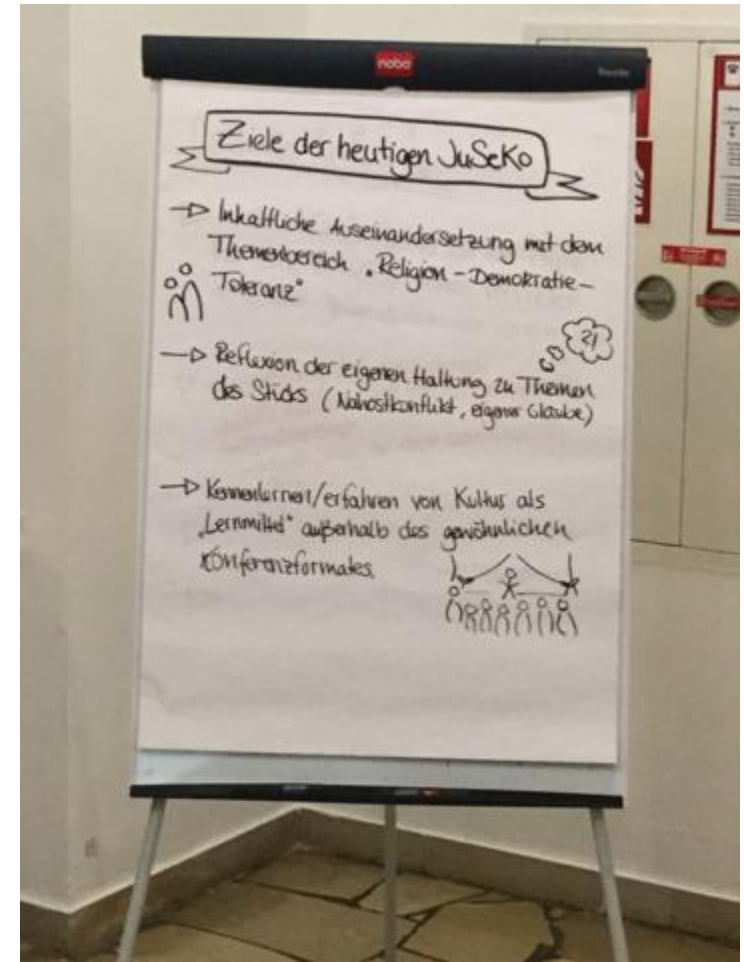 nobo
Ziele der heutigen JuSeKo
Inhaltliche Auseinandersetzung mit dem
Themenbereich „Religion - Demokratie -
Toleranz"
?!
Reflexion der eigenen Haltung zu Themen
des Stücks (Nahostkonflikt, eigener Glaube)
Kennenlernen/erfahren von Kultur als
„Lernmittel" außerhalb des gewöhnlichen
Konferenzformates